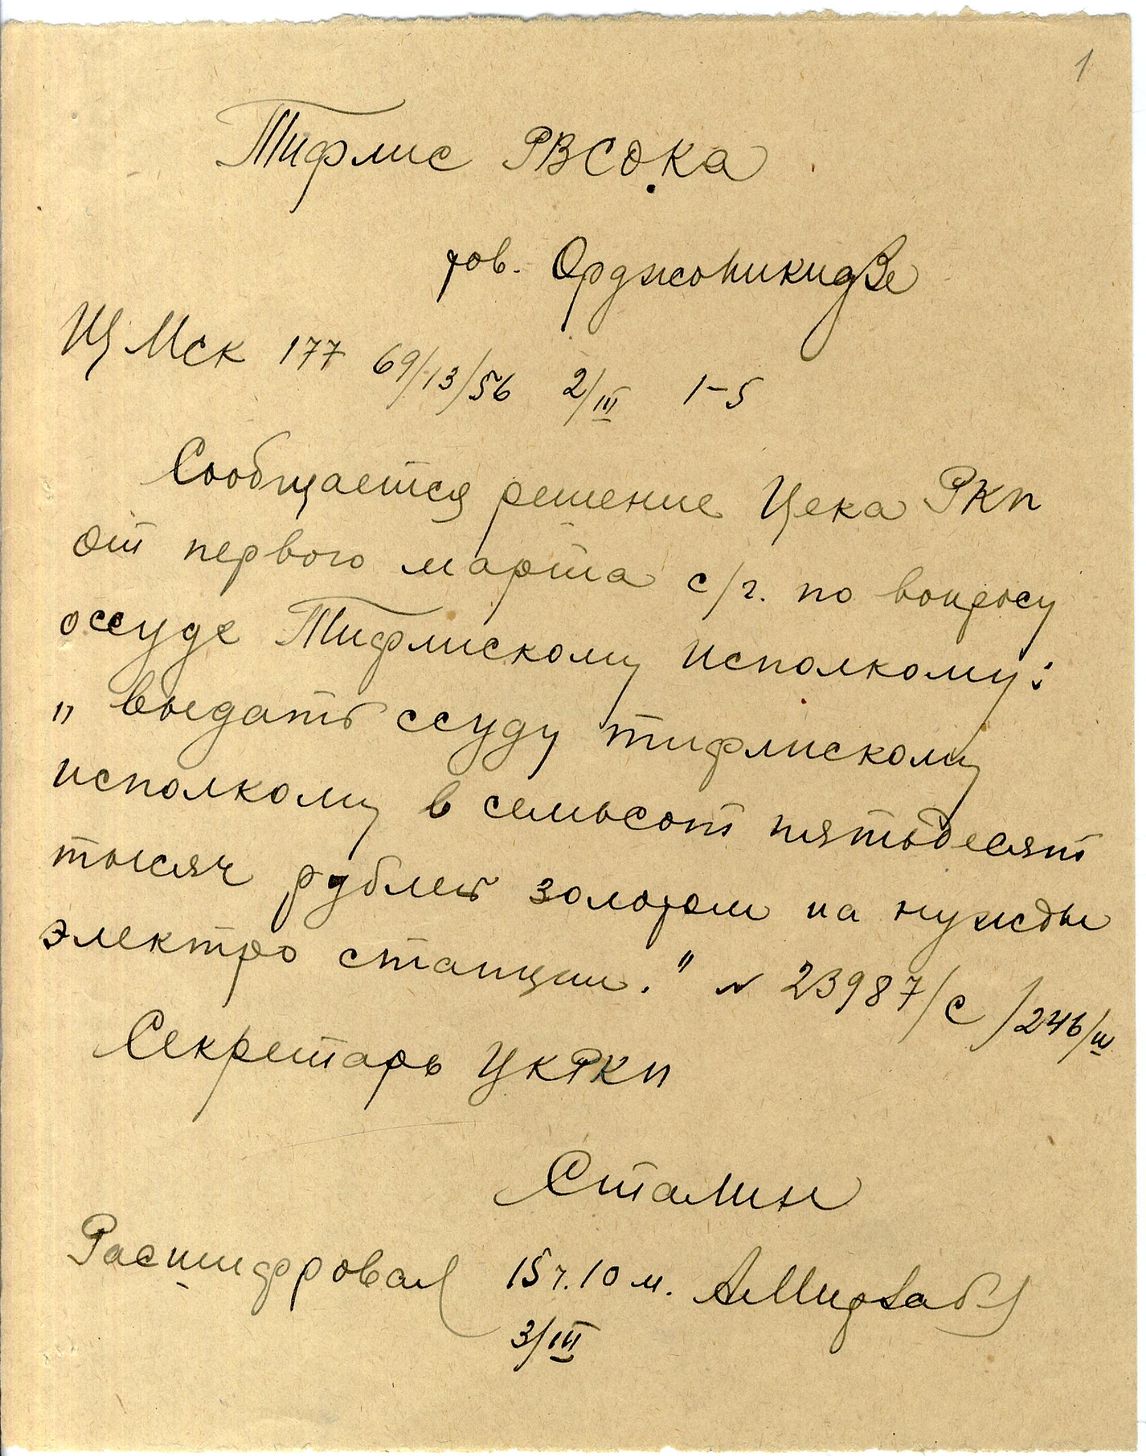 1
Тифлис РВСОКа
тов. Орджоникидзе
Щ Мск 177 69/13/56 2/III 1-5
Сообщается решение Цека РКП
от первого марта с/г. по вопросу
оссуде Тифлискому исполкому:
„выдать ссуду тифлискому
исполкому в семьсот пятьдесят
тысяч рублей золотом на нужды
электро станции." № 23987/С /246/III
Секретарь ЦКРКП
Сталин
Расшифровал 15 ч. 10 м.
3/III